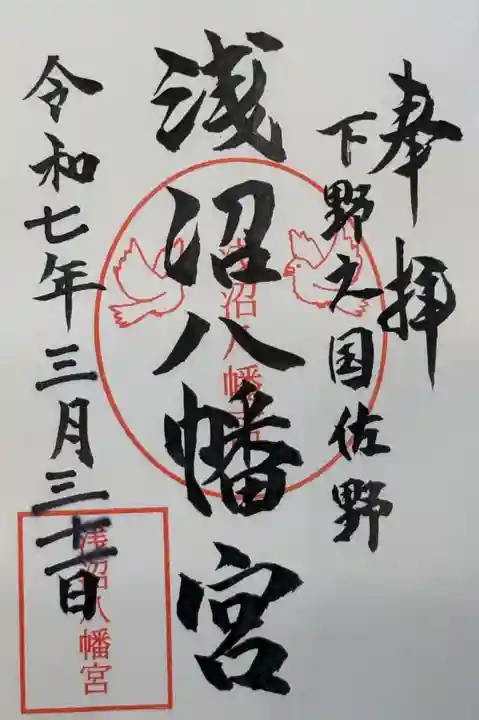 奉拝
下野之国佐野
浅沼八幡宮
浅沼八幡宮
令和七年三月三十一日
浅沼八幡宮